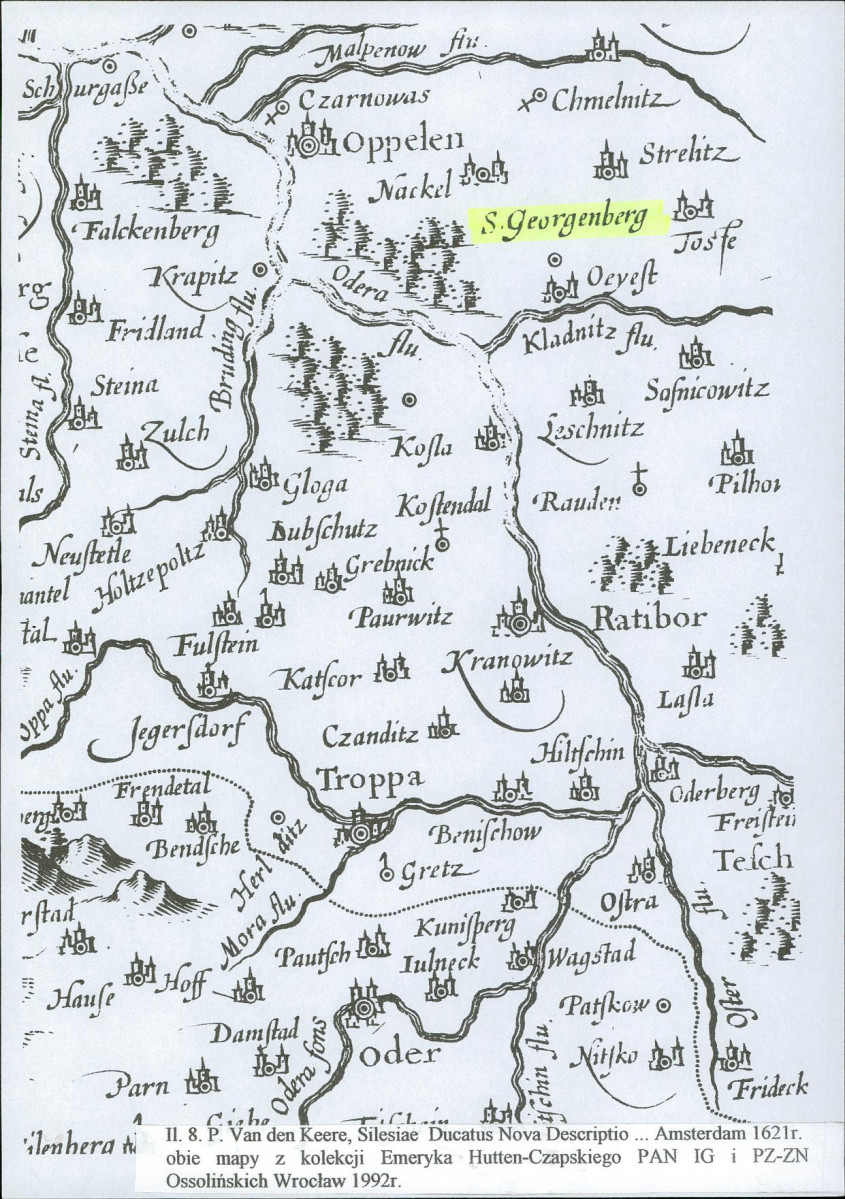 Malpenow flu.
Schurgaße
Czarnowas
Chmelnitz
Oppelen
Strelitz
Nackel
S. Georgenberg
Falckenberg
Tosſe
Krapitz
Odera
flu.
Oeyeſt
Fridland
Bruding flu.
Kladnitz flu.
Saſnicowitz
Steina
Steina fl.
Zulch
Leschnitz
Koſla
Gloga
Koſtendal
Rauden
Neuſtetle
Holtzepoltz
Lubſchutz
Grebnick
Liebeneck
Paurwitz
Ratibor
Fulſtein
Katſcor
Kranowitz
Laſla
Oppa flu.
Jegerſdorf
Czanditz
Hiltſchin
Troppa
Frendetal
Oderberg
Bendſche
Herlditz
Benischow
Freiſtein
Teſch
Gretz
Mora flu.
Oſtra
flu
Kuniſperg
Pautſch
Iulneck
Wagſtad
Hauſe
Hoff
Patſkow
Oſter
Damſtad
Oder
Odera fons
Nitſko
Parn
Frideck
Il. 8. P. Van den Keere, Silesiae Ducatus Nova Descriptio ... Amsterdam 1621r.
obie mapy z kolekcji Emeryka Hutten-Czapskiego PAN IG i PZ-ZN
Ossolińskich Wrocław 1992r.